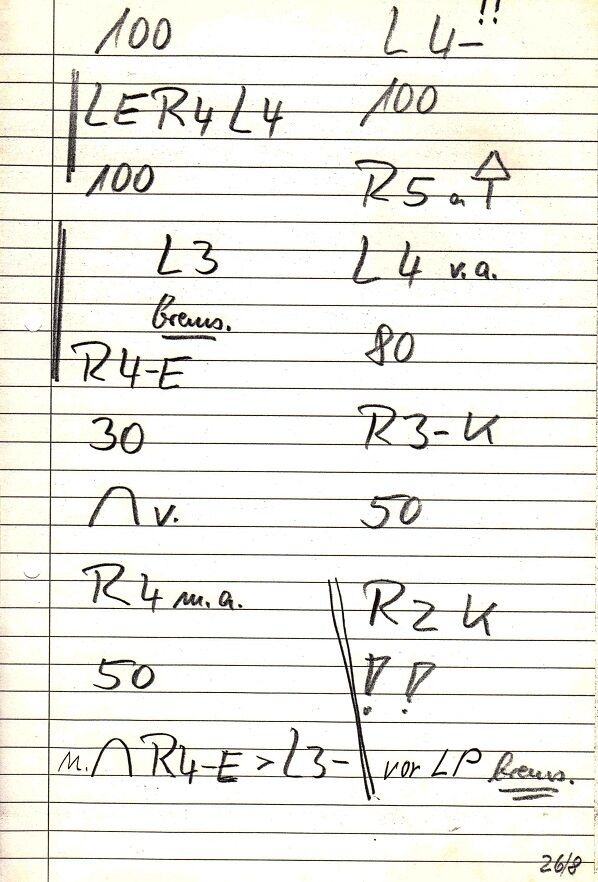 100
LER4 L4
100
L3
brems.
R4-E
30
∩ v.
R4 m.a.
50
m. ∩ R4-E > L3-
L 4- !!
100
R5 a.
L 4 v.a.
80
R3-K
50
R2 K
!!
vor LP brems.
26/8